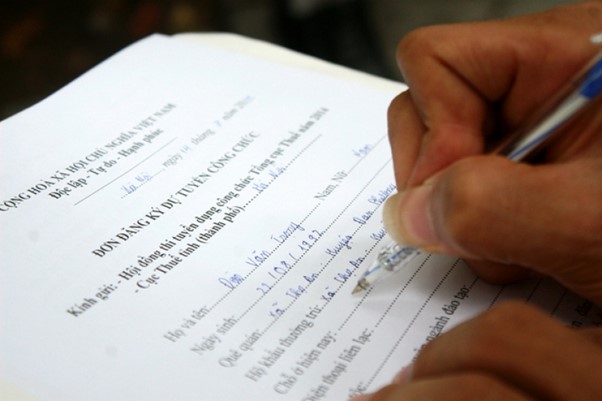 CỘNG HÒA XÃ HỘI CHỦ NGHĨA VIỆT NAM
Độc lập - Tự do - Hạnh phúc
Hà Nội, ngày tháng năm
ĐƠN ĐĂNG KÝ DỰ TUYỂN CÔNG CHỨC
Kính gửi: - Hội đồng thi tuyển dụng công chức Tổng cục Thuế năm 2014
- Cục Thuế tỉnh (thành phố)....Hà Nội
Họ và tên: Văn Nam, Nữ: Nam
Ngày sinh: /08/1992
Quê quán: Xã Thọ An, Huyện Đan Phượng
Hộ khẩu thường trú: Xã Thọ An,
Chỗ ở hiện nay:
Điện thoại liên lạc:
ngành đào tạo: